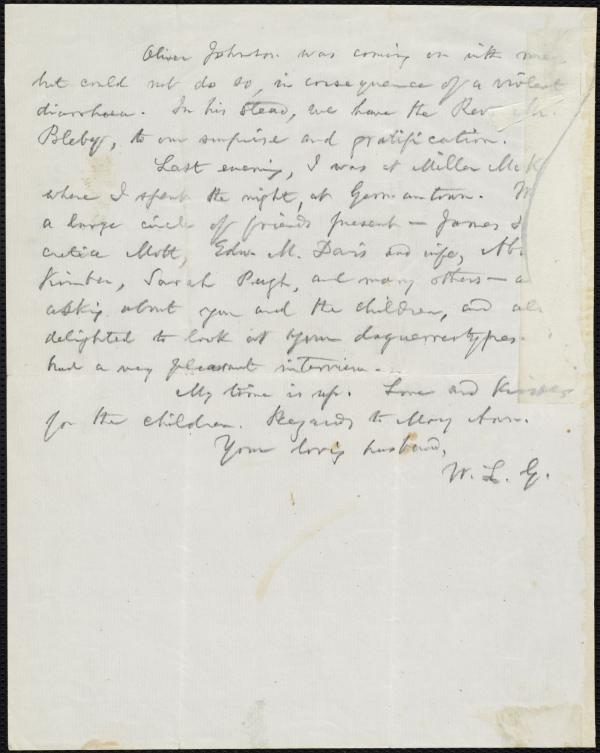 Oliver Johnson was coming on with me,
but could not do so, in consequence of a violent
diarrhœa. In his stead, we have the Rev. Mr.
Bleby, to our surprise and gratification.
Last evening, I was at Miller McK
where I spent the night, at Germantown. W
a large circle of friends present — James &
cretia Mott, Edw. M. Davis and wife, Ab
Kimber, Sarah Pugh, and many others — a
asking about you and the children, and all
delighted to look at your daguerreotypes.
had a very pleasant interview.
My time is up. Love and kisses
for the children. Regards to Mary Ann.
Your loving husband,
W. L. G.